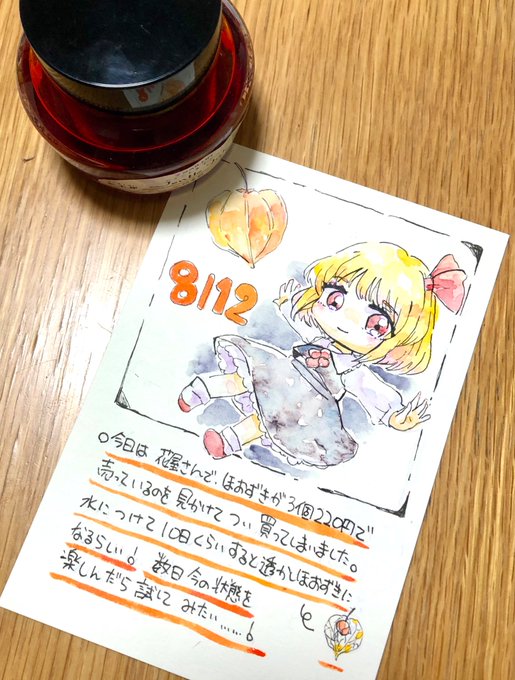 8/12
○今日は 花屋さんで、ほおずきが3個220円で
売っているのを見かけてつい買ってしまいました。
水につけて10日くらいすると透かしほおずきに
なるらしい! 数日今の状態を
楽しんだら試してみたい……!